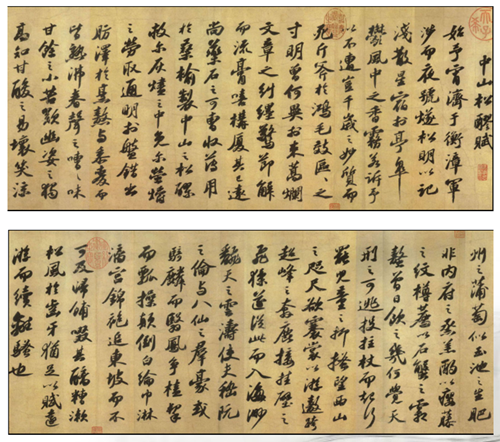 中山松醪賦
始予宵濟於衡漳軍
涉而夜號燧松明以記
淺散星宿於亭皋
鬱風中之香霧若訴予
以不遭豈千歲之妙質而
死斤斧於鴻毛效區區之
寸明曾何異於束蒿爛
文章之糾纏驚節解
而流膏嘻構厦其已遠
尚藥石之可曹收薄用
於桑榆製中山之松醪
救爾灰燼之中免爾螢爝
之勞取通明於盤錯出
肪澤於烹熬與黍麥而
皆熟沸舂聲之嘈嘈味
甘餘之小苦歎幽姿之獨
高知甘酸之易壞笑涼
州之蒲萄似玉池之生肥
非內府之蒸羔酌以癭藤
之紋樽薦以石蟹之霜
螯曾日飲之幾何覺天
刑之可逃投拄杖而起行
罷兒童之抑搔望西山
之咫尺欲褰裳以游遨跨
超峰之奔鹿接挂壁之
飛猱遂從此而入海渺
翻天之雲濤使夫嵇阮
之倫與八仙之群豪或
騎麟而翳鳳爭榼挈
而瓢操顛倒白綸巾淋
漓宮錦袍追東坡而不
可及歸餔歠其醨糟漱
松風於齒牙猶足以賦遠
游而續離騷也